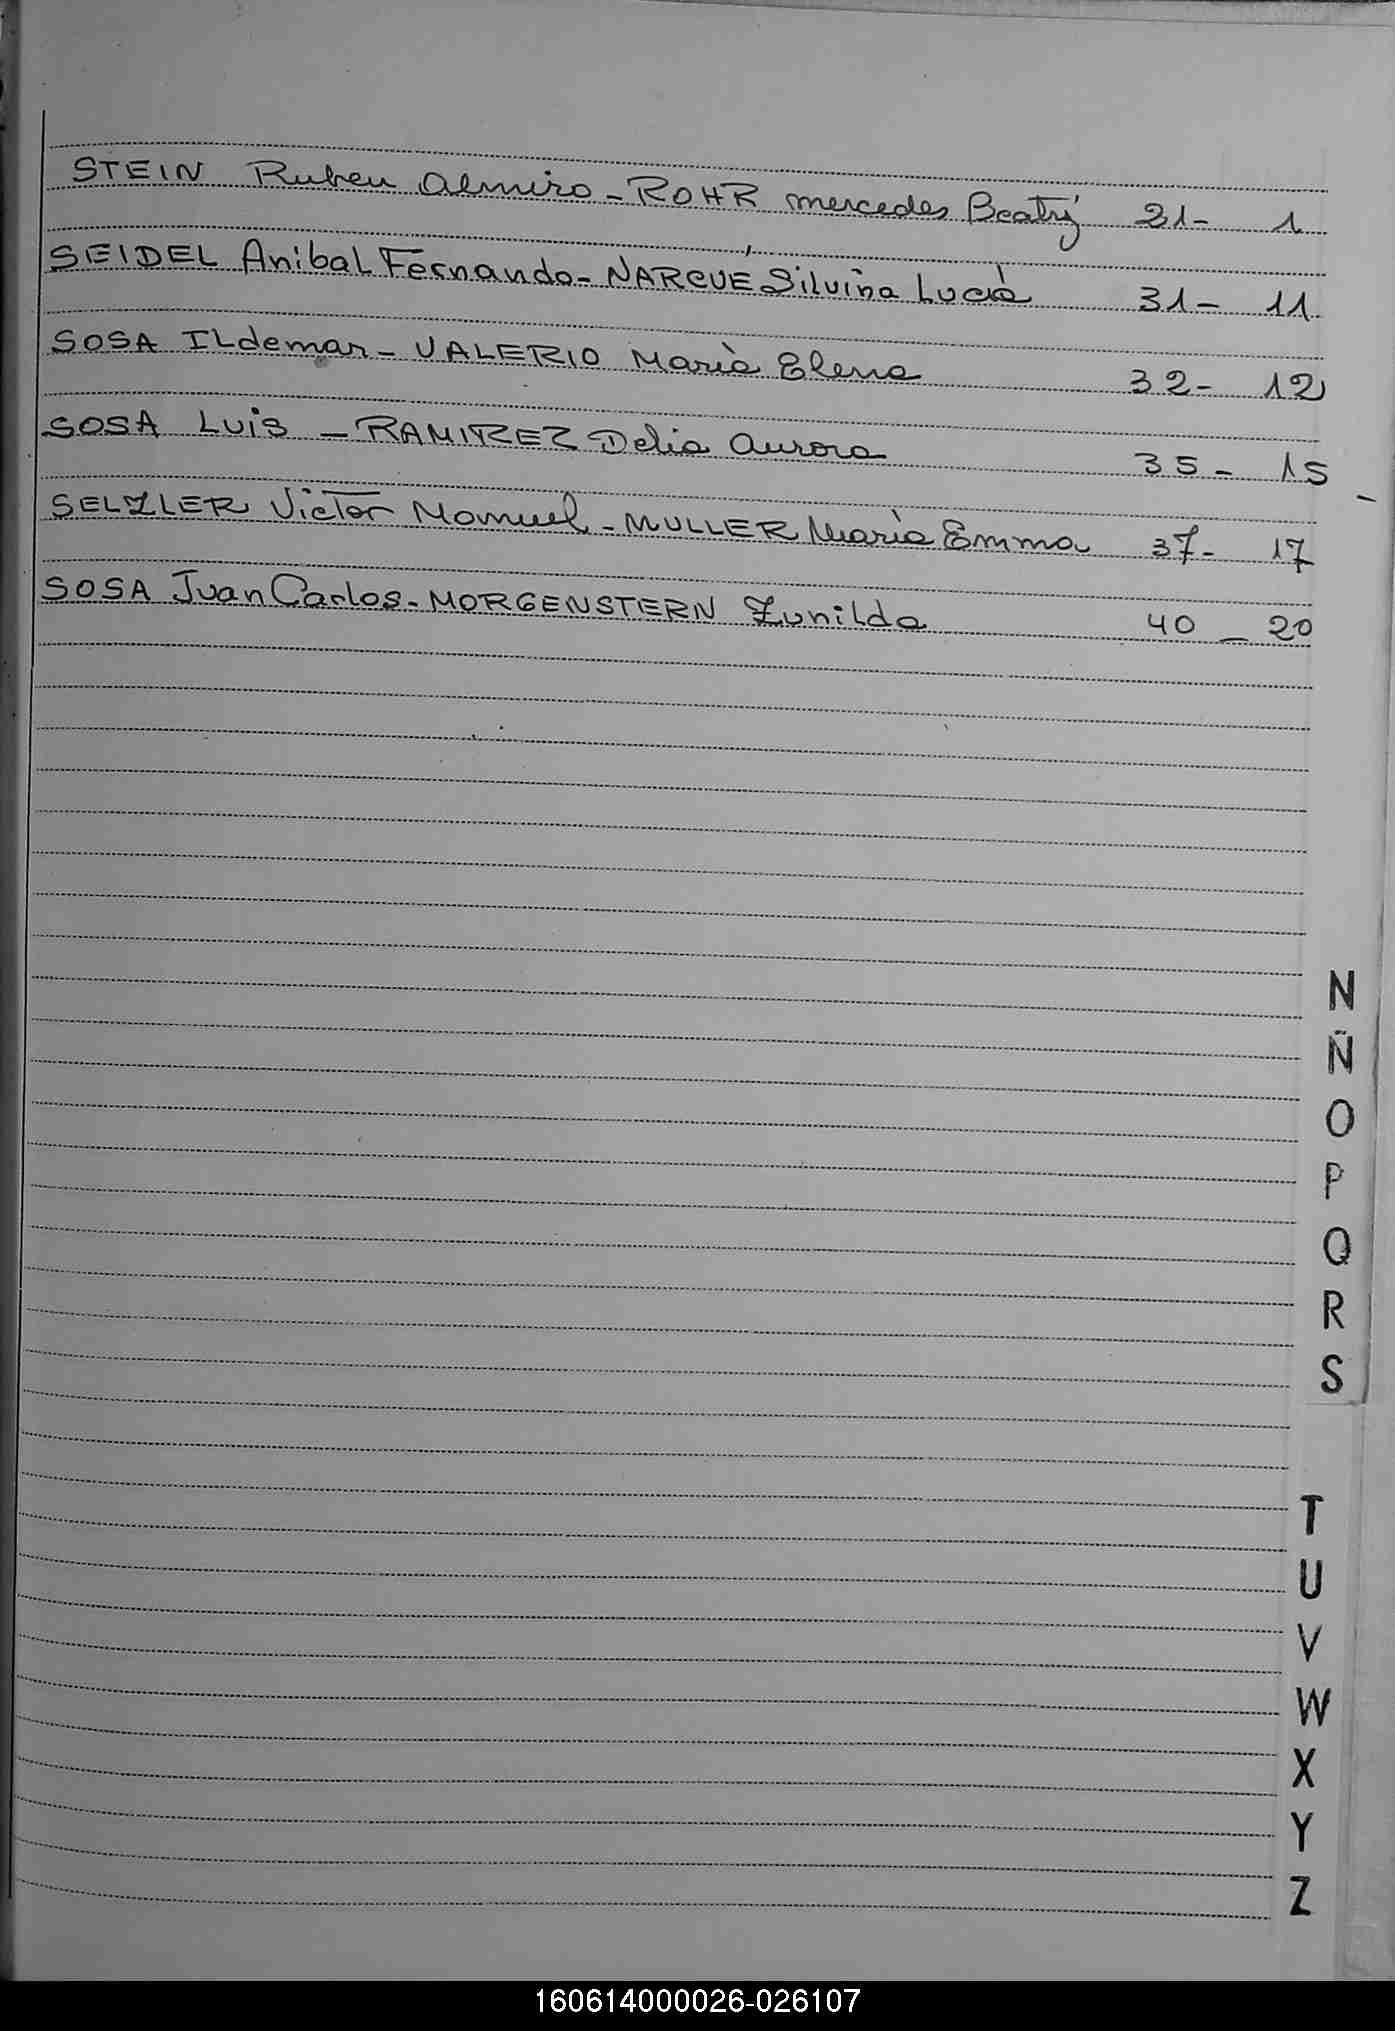 STEIN Ruben Almiro - ROHR Mercedes Beatriz 21 - 1
SEIDEL Anibal Fernando - NARCUE Silvina Lucía 31 - 11
SOSA ILdemar - VALERIO María Elena 32 - 12
SOSA Luis - RAMIREZ Delia Aurora 35 - 15
SELZLER Victor Manuel - MULLER María Emma 37 - 17
SOSA Juan Carlos - MORGENSTERN Zunilda 40 - 20
N
Ñ
O
P
Q
R
S
T
U
V
W
X
Y
Z
160614000026-026107